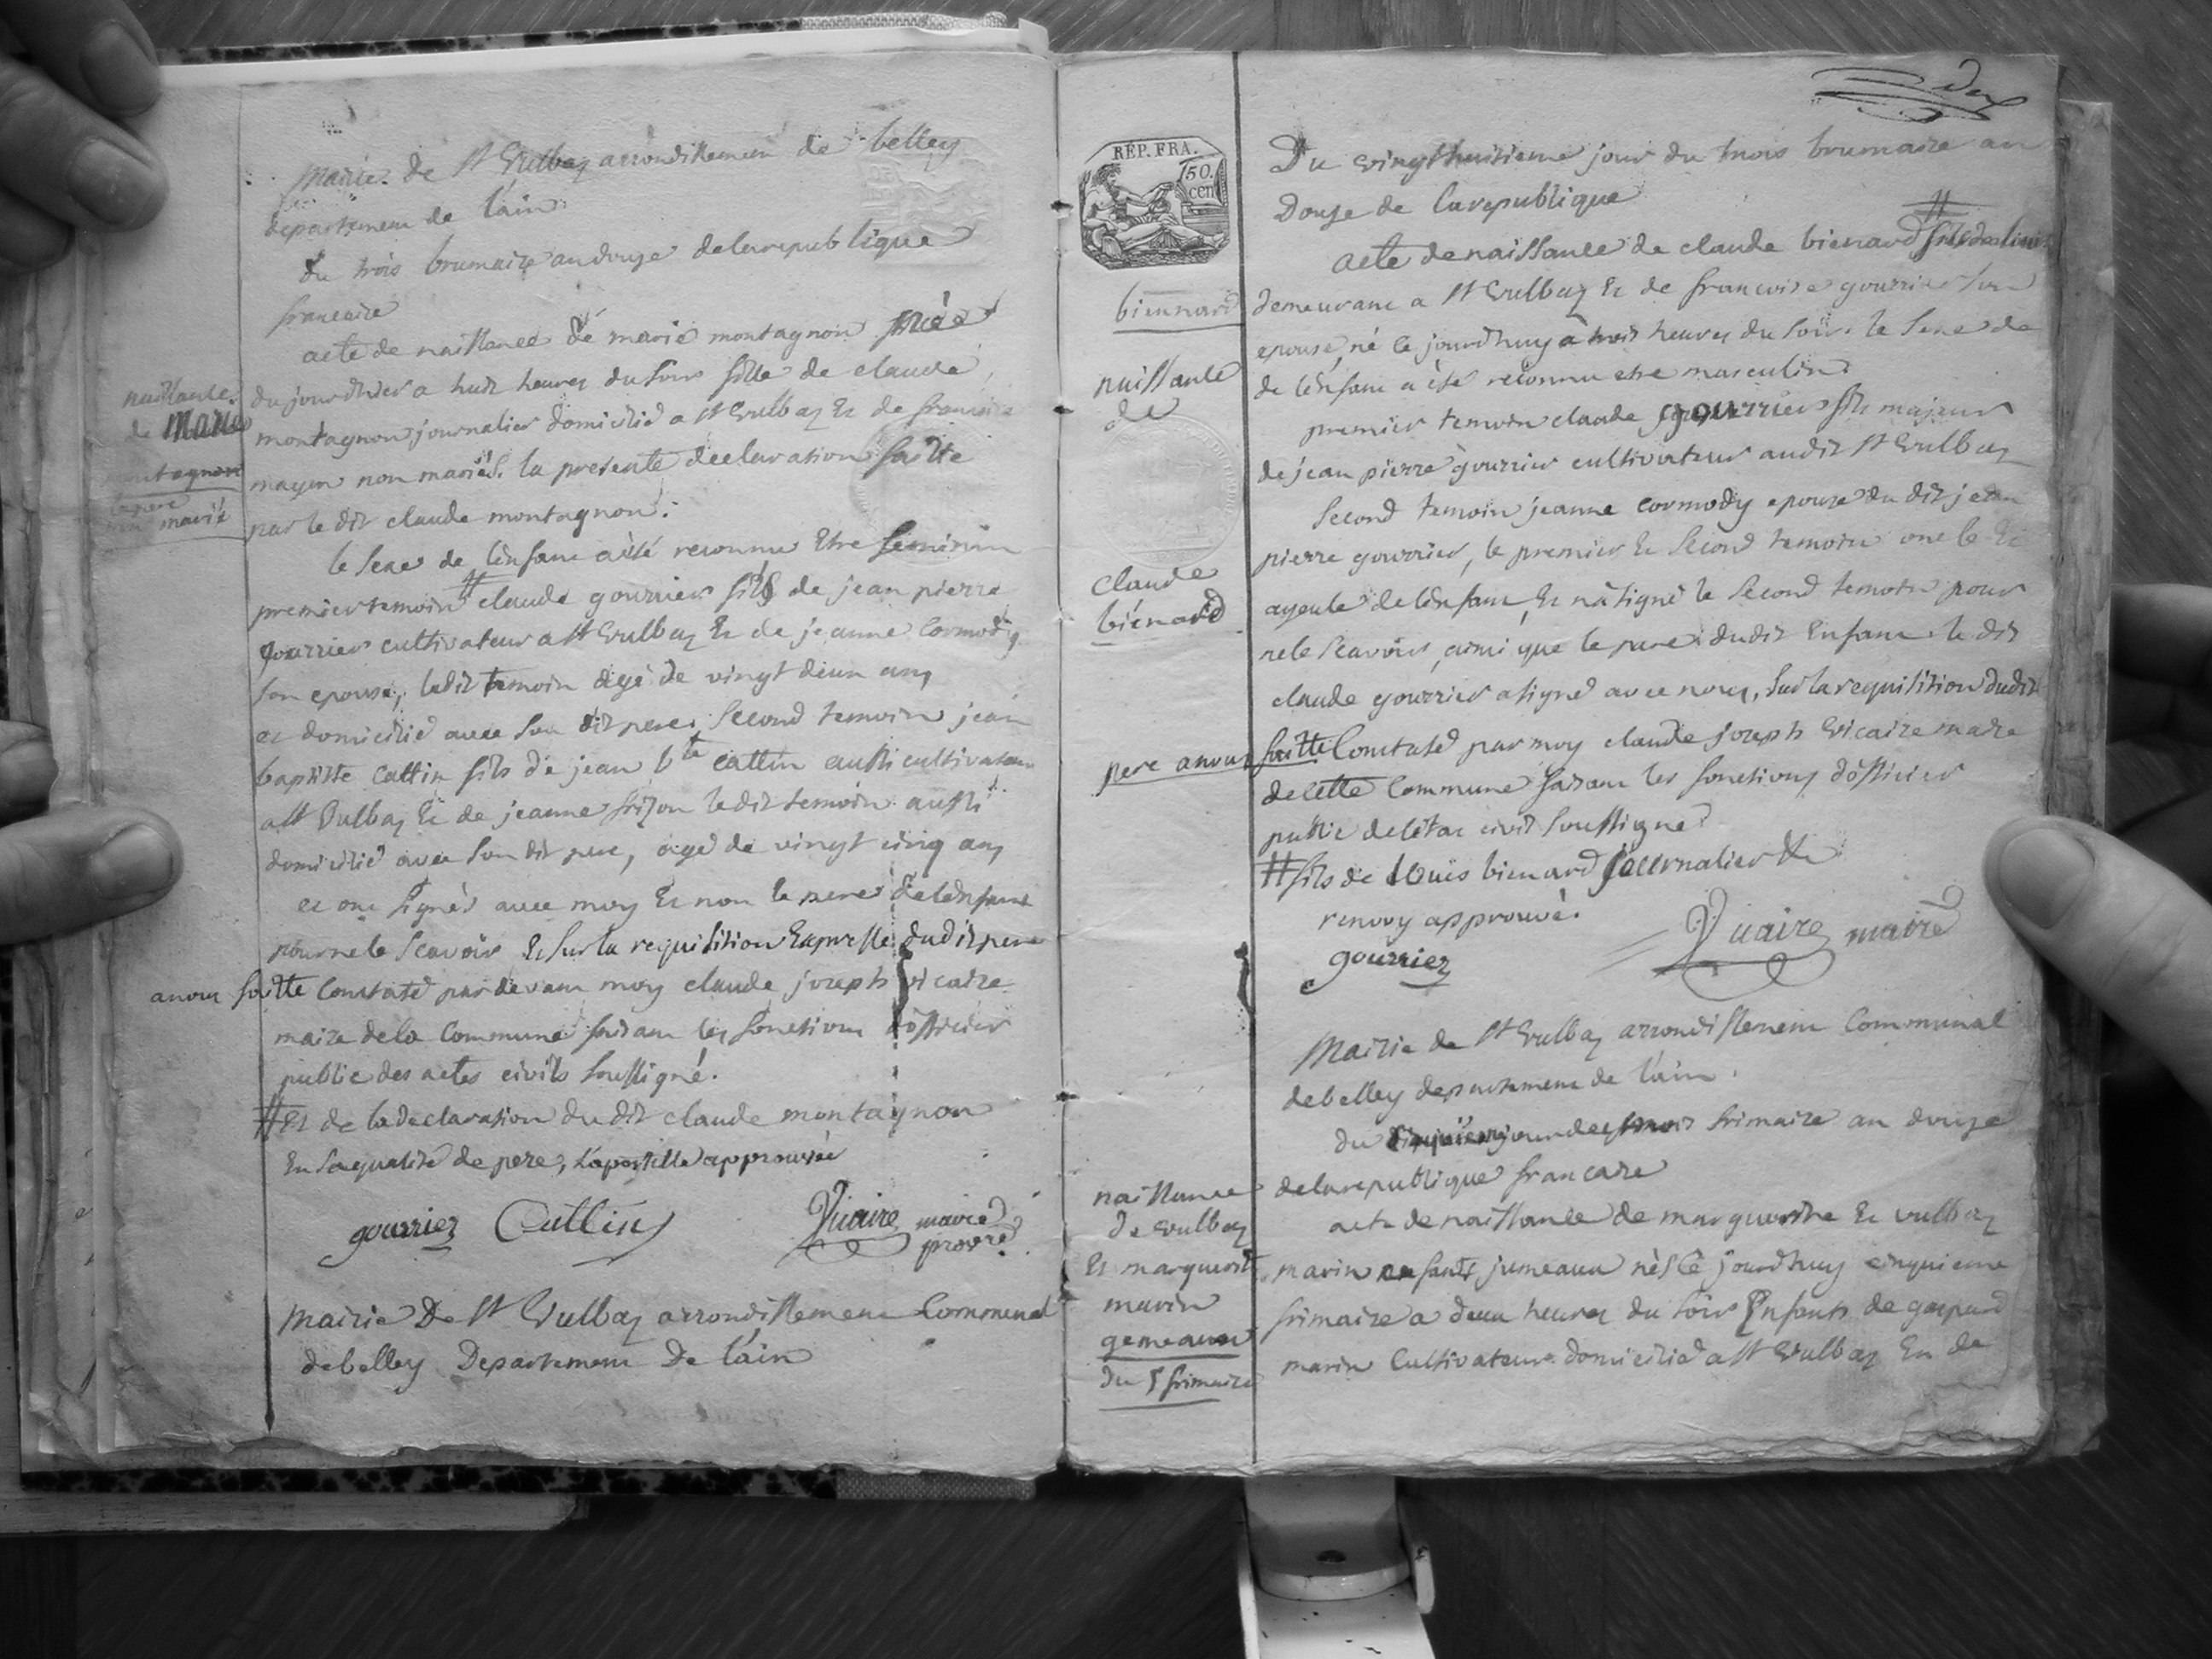 Mairie de St Vulbaz arrondissement de belley
departement de l'ain
du trois brumaire an douze de la republique
francaise
acte de naissance de marie montagnon née
naissance
de Marie
montagnon
le pere
non marié
du jour d'hier a huit heures du soir fille de claude
montagnon journalier domicilié a St Vulbaz Et de francoise
mayen non mariés. la presente declaration faitte
par le dit claude montagnon.
le sexe de l'enfant a été reconnu Etre feminin
premier temoin # claude gourrier fils de jean pierre
gourrier cultivateur a St Vulbaz Et de jeanne Cormody
son epouse, ledit temoin agé de vingt deux ans
et domicilié avec son dit pere. Second temoin jean
baptiste Cattin fils de jean bte cattin aussi cultivateur
a St Vulbaz Et de jeanne frizon le dit temoin aussi
domicilié avec son dit pere, agé de vingt cinq ans
et ont signés avec moy Et non le pere de l'enfant
pour ne le scavoir Et sur la requisition Expresse dudit pere
a nous faitte Constaté par devant moy claude joseph vicaire
maire de la Commune faisant les fonctions d'officier
public des actes civils soussigné.
# Et de la declaration du dit claude montagnon
En sa qualité de pere, l'apostille approuvée
gourrier Cattin Vicaire maire
provre
Mairie De St Vulbaz arrondissement Communal
de belley Departement De l'ain
deux
REP. FRA.
50.
cen
Du vingt huitieme jour du mois brumaire an
Douze de la republique
bienard
naissance
de
claude
biénard
acte de naissance de claude bienard # fils de louis
demeurant a St Vulbaz Et de francoise gourrier son
epouse, né le jourd'huy a trois heures du soir. le sexe de
de l'enfant a été reconnu etre masculin
premier temoin claude gourrier fils majeur
de jean pierre gourrier cultivateur audit St Vulbaz
Second temoin jeanne cormody epouse du dit jean
pierre gourrier, le premier Et second temoin oncle Et
ayeule de l'enfant, Et n'a signé le second temoin pour
ne le scavoir, ainsi que le pere dudit Enfant. le dit
claude gourrier a signé avec nous, Sur la requisition dudit
pere a nous faitte Constaté par moy claude joseph vicaire maire
de cette Commune faisant les fonctions d'officier
public de l'état civil soussigné
# fils de louis bienard journalier &
renvoy approuvé.
gourrier Vicaire maire
Mairie de St Vulbaz arrondissement Communal
de belley departement de l'ain.
du cinquieme jour des mois frimaire an douze
de la republique francaise
naissance
de vulbaz
Et marguerite
marin
gemeaux
du 5 frimaire
acte de naissance de marguerite Et vulbaz
marin enfants jumeaux nés le jourd'huy cinquieme
frimaire a deux heures du soir Enfants de gaspard
marin Cultivateur domicilié a St Vulbaz Et de